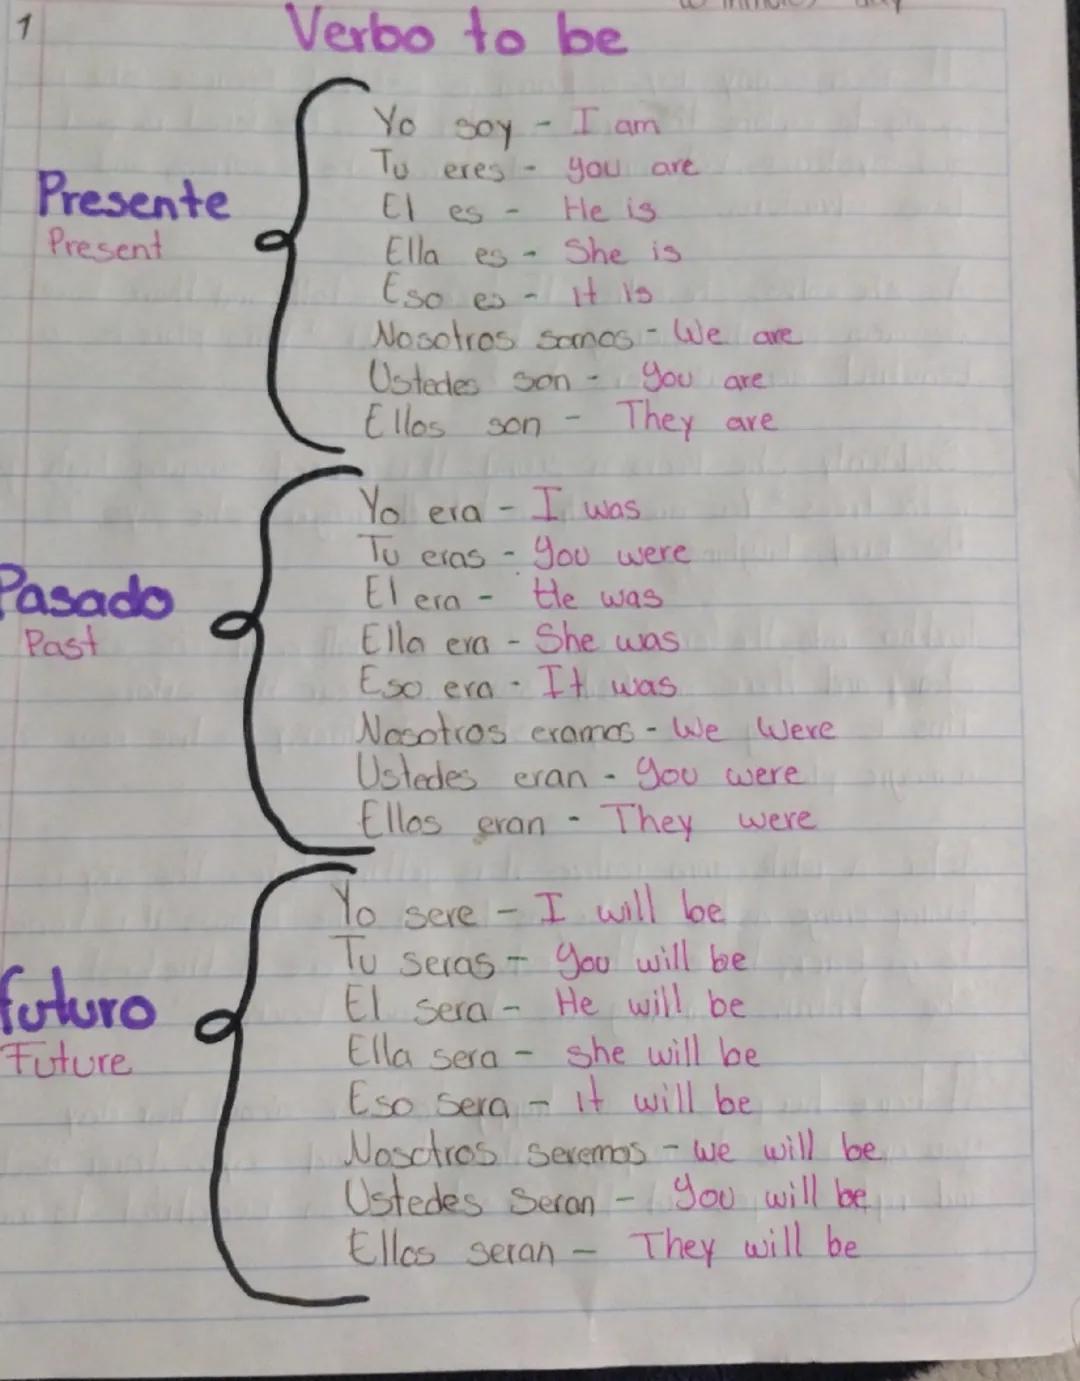 1
Verbo to be
Presente
Present
Yo soy - I am
Tu eres - you are
El es - He is
Ella es - She is
Eso es - it is
Nosotros somos - We are
Ustedes son - you are
Ellos son - They are
Pasado
Past
Yo era - I was
Tu eras - you were
El era - He was
Ella era - She was
Eso era - It was
Nosotros eramos - We Were
Ustedes eran - you were
Ellos eran - They were
futuro
Future
Yo sere - I will be
Tu seras - you will be
El sera - He will be
Ella sera - she will be
Eso sera - it will be
Nosotros seremos - we will be
Ustedes Seran - you will be
Ellos seran - They will be